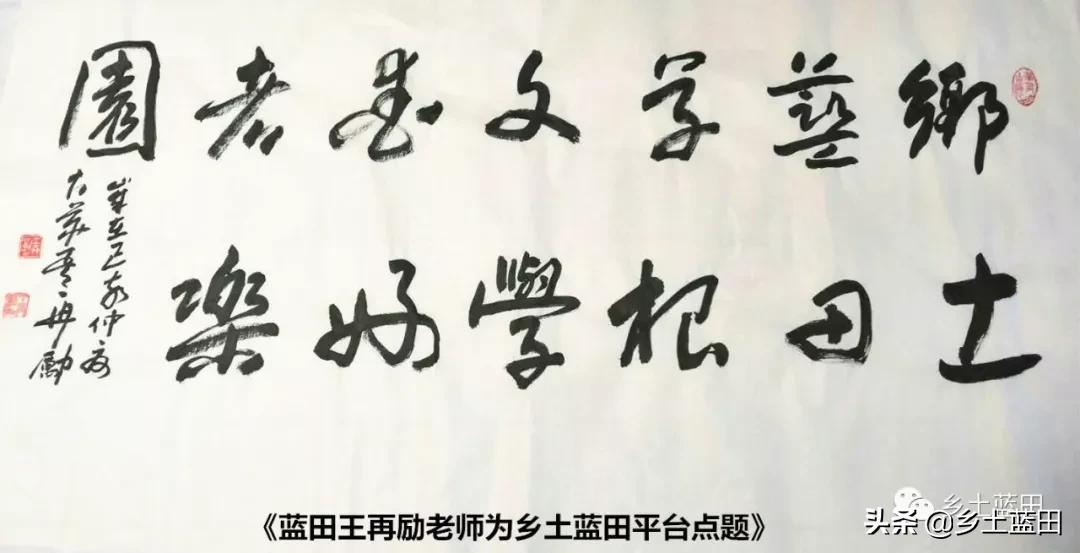 鄉土
藍田
草根
文學
愛好
者樂
園
歲在己亥仲夏
再勵
《蓝田王再励老师为乡土蓝田平台点题》
乡土蓝田
头条@乡土蓝田